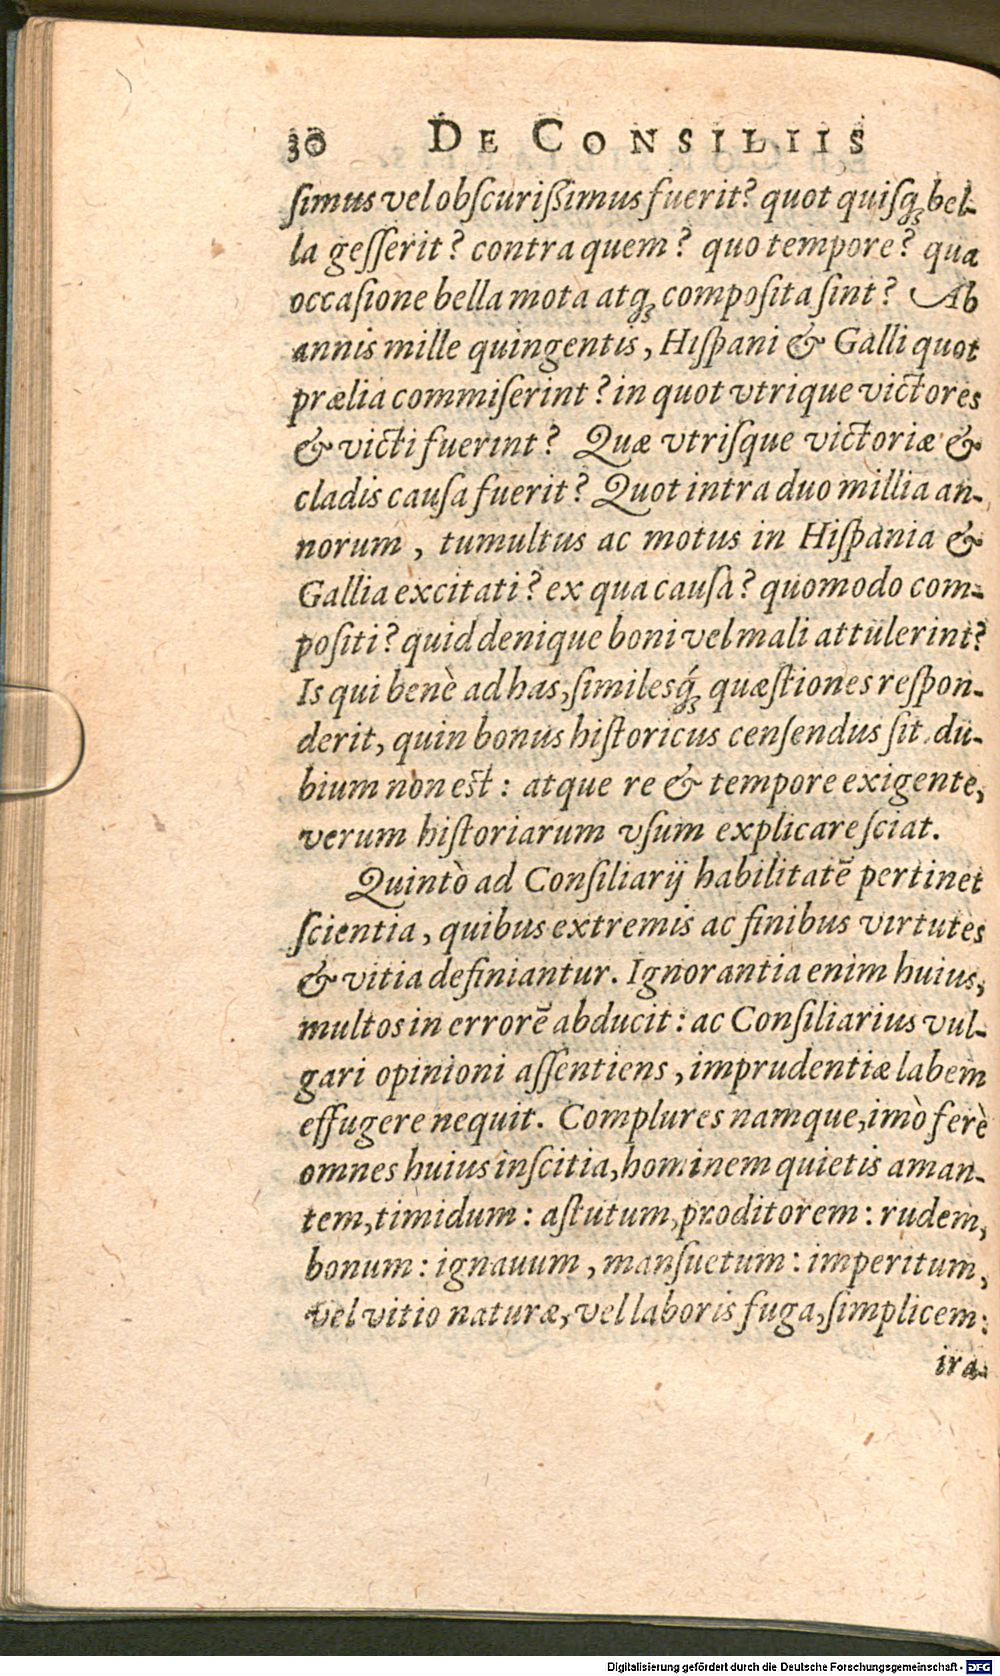 30 DE CONSILIIS
ſimus vel obſcuriſsimus fuerit? quot quiſq; bel-
la geſſerit? contra quem? quo tempore? qua
occaſione bella mota atq; compoſita ſint? Ab
annis mille quingentis, Hiſpani & Galli quot
prælia commiſerint? in quot vtrique victores
& victi fuerint? Quæ vtriſque victoriæ &
cladis cauſa fuerit? Quot intra duo millia an-
norum, tumultus ac motus in Hiſpania &
Gallia excitati? ex qua cauſa? quomodo com-
poſiti? quid denique boni vel mali attulerint?
Is qui benè ad has, ſimilesq́; quæſtiones reſpon-
derit, quin bonus hiſtoricus cenſendus ſit, du-
bium non est: atque re & tempore exigente,
verum hiſtoriarum vſum explicare ſciat.
Quintò ad Conſiliarij habilitatē pertinet
ſcientia, quibus extremis ac finibus virtutes
& vitia definiantur. Ignorantia enim huius,
multos in errorē abducit: ac Conſiliarius vul-
gari opinioni aſſentiens, imprudentiæ labem
effugere nequit. Complures namque, imò ferè
omnes huius inſcitia, hominem quietis aman-
tem, timidum: aſtutum, proditorem: rudem,
bonum: ignauum, manſuetum: imperitum,
vel vitio naturæ, vel laboris fuga, ſimplicem:
ira-
Digitalisierung gefördert durch die Deutsche Forschungsgemeinschaft - DFG